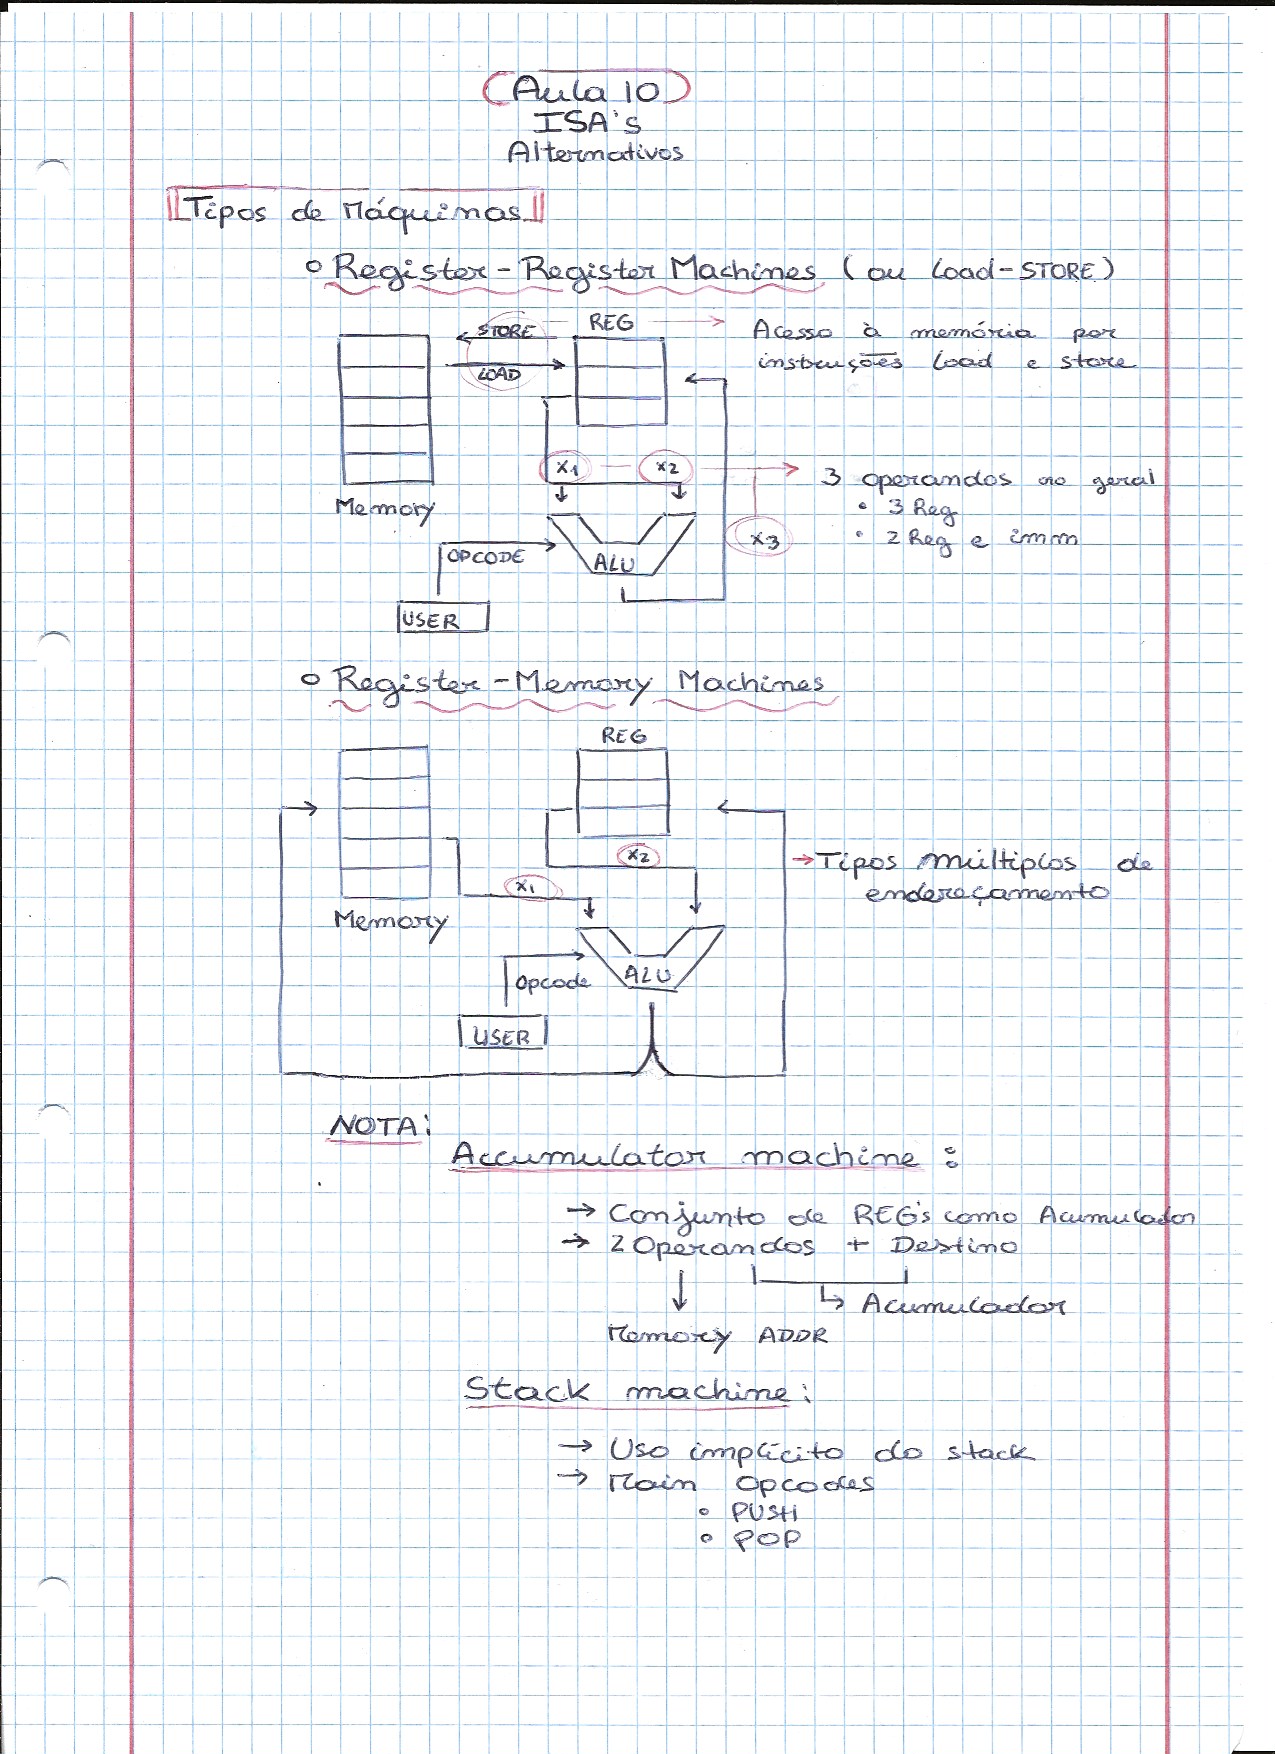 Aula 10
ISA's
Alternativos
Tipos de Máquinas
Register-Register Machines (ou Load-STORE)
STORE
REG
Acesso à memória por
instruções Load e store
LOAD
x1
x2
3 operandos no geral
• 3 Reg
• 2 Reg e imm
Memory
x3
OPCODE
ALU
USER
Register-Memory Machines
REG
x2
Tipos múltiplos de
endereçamento
x1
Memory
Opcode
ALU
USER
NOTA:
Accumulator machine:
→ Conjunto de REG's como Acumulador
→ 2 Operandos + Destino
↳ Acumulador
Memory ADDR
Stack machine:
→ Uso implícito do stack
→ Main Opcodes
• PUSH
• POP